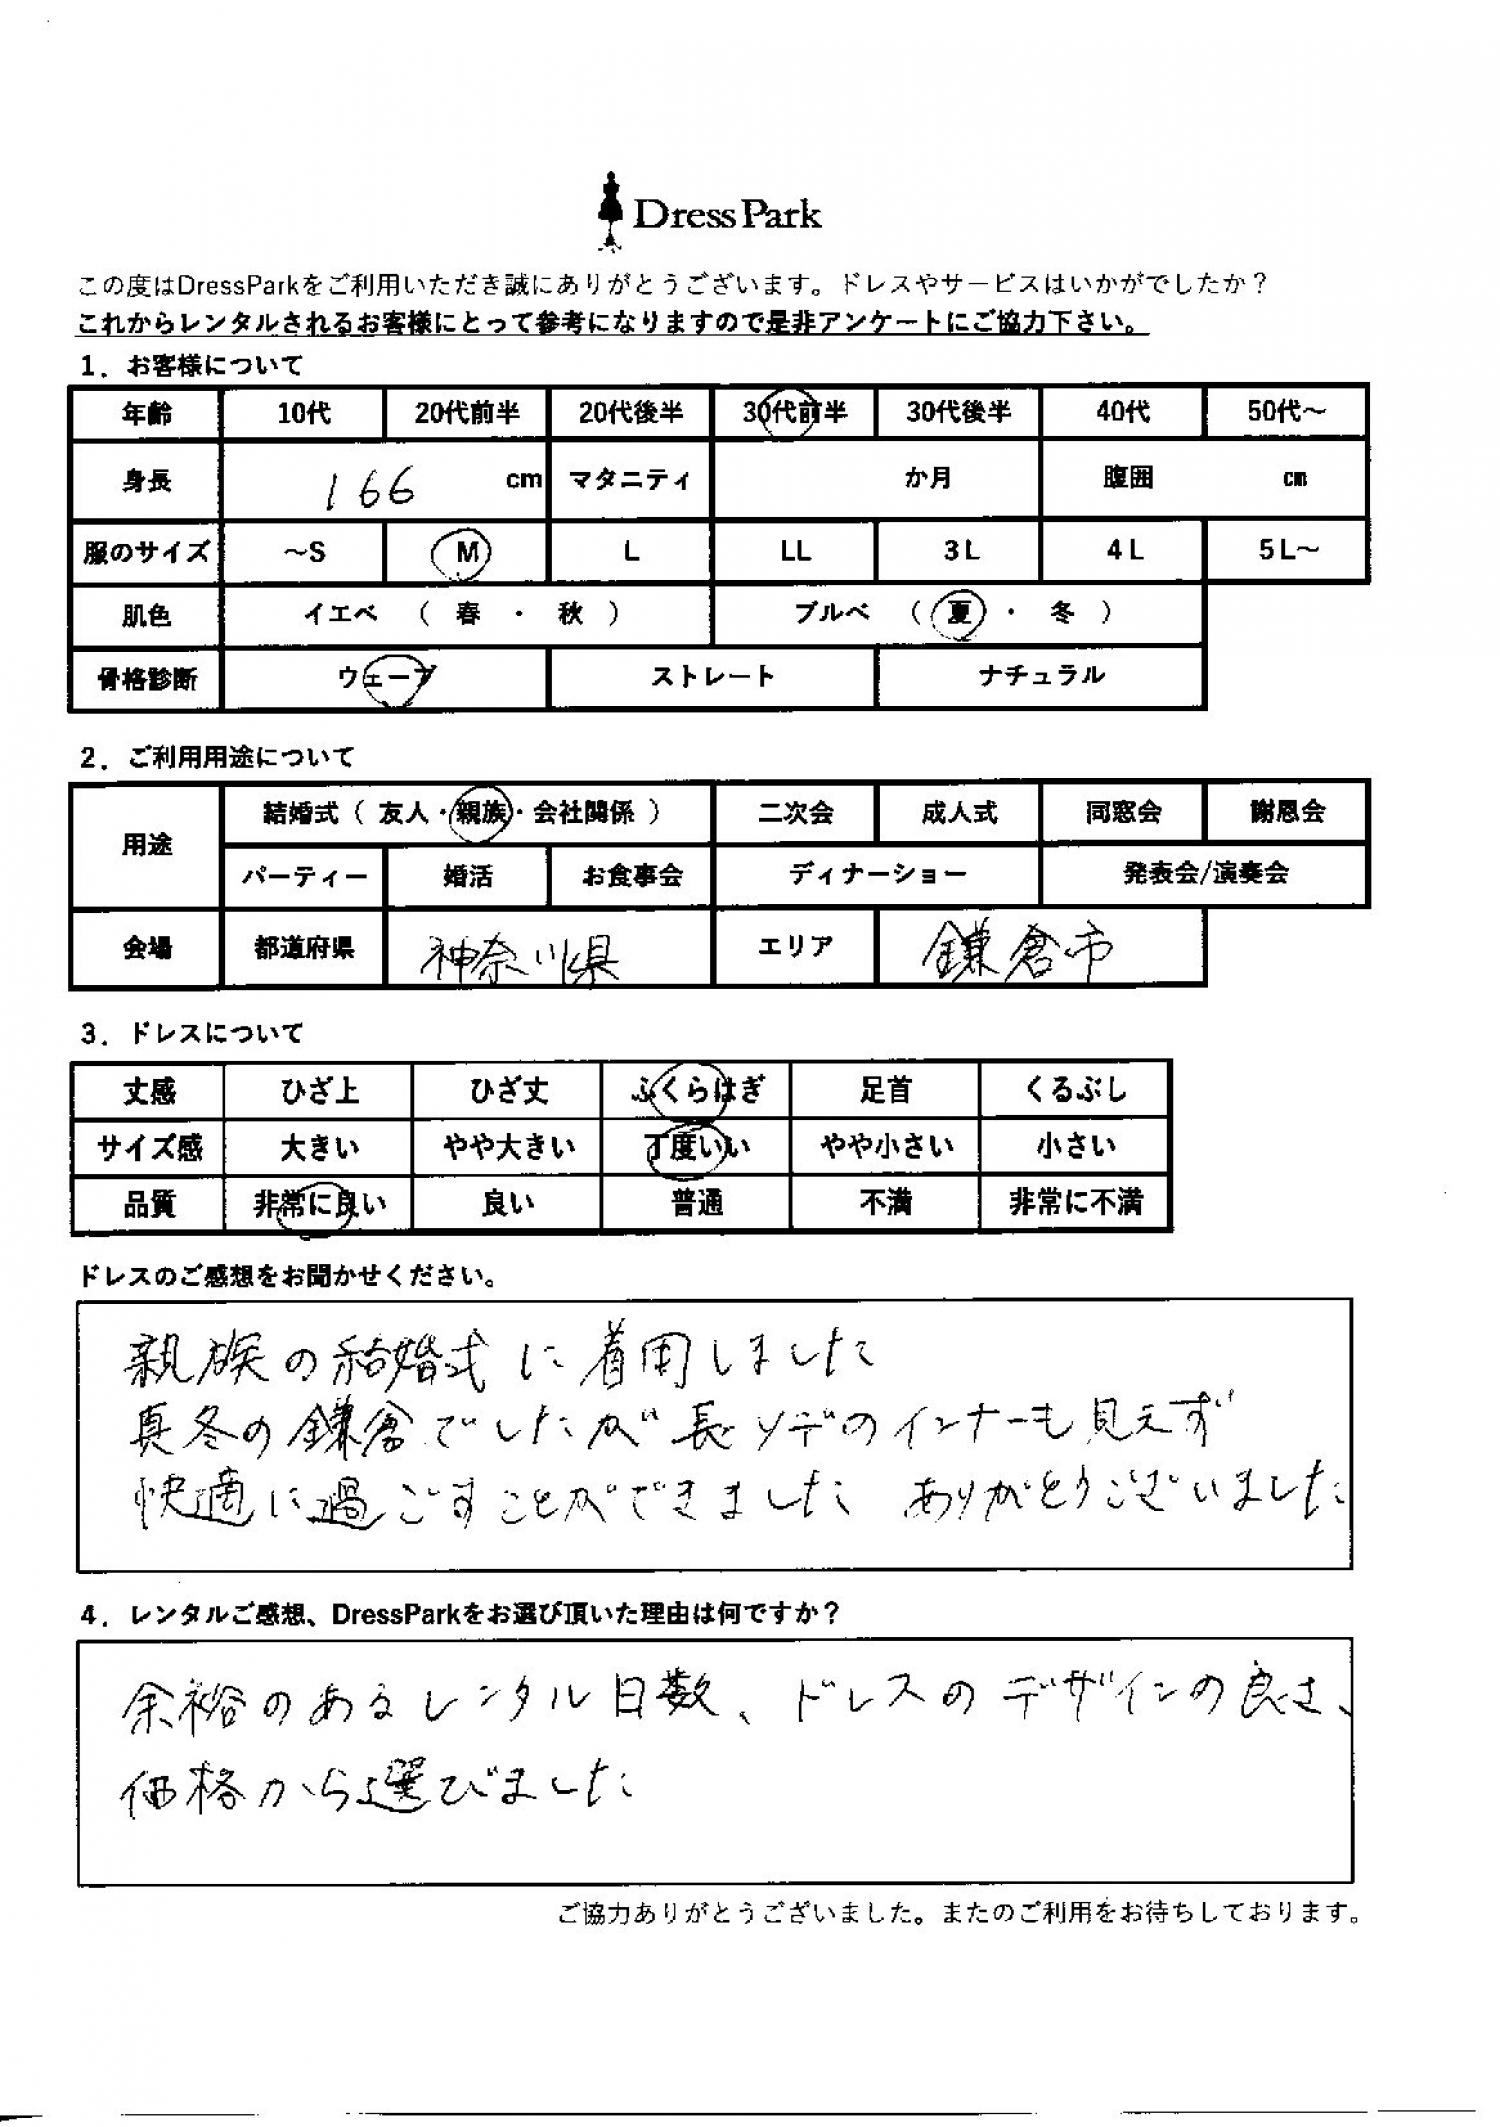 Dress Park
この度はDressParkをご利用いただき誠にありがとうございます。ドレスやサービスはいかがでしたか？
これからレンタルされるお客様にとって参考になりますので是非アンケートにご協力下さい。
1．お客様について
年齢 10代 20代前半 20代後半 30代前半 30代後半 40代 50代～
身長 166 cm マタニティ か月 腹囲 cm
服のサイズ ～S M L LL 3L 4L 5L～
肌色 イエベ （ 春 ・ 秋 ） ブルベ （ 夏 ・ 冬 ）
骨格診断 ウェーブ ストレート ナチュラル
2．ご利用用途について
用途 結婚式（ 友人・親族・会社関係 ） 二次会 成人式 同窓会 謝恩会
パーティー 婚活 お食事会 ディナーショー 発表会/演奏会
会場 都道府県 神奈川県 エリア 鎌倉市
3．ドレスについて
丈感 ひざ上 ひざ丈 ふくらはぎ 足首 くるぶし
サイズ感 大きい やや大きい 丁度いい やや小さい 小さい
品質 非常に良い 良い 普通 不満 非常に不満
ドレスのご感想をお聞かせください。
親族の結婚式に着用しました
真冬の鎌倉でしたが長ソデのインナーも見えず
快適に過ごすことができました ありがとうございました
4．レンタルご感想、DressParkをお選び頂いた理由は何ですか？
余裕のあるレンタル日数、ドレスのデザインの良さ、
価格から選びました
ご協力ありがとうございました。またのご利用をお待ちしております。